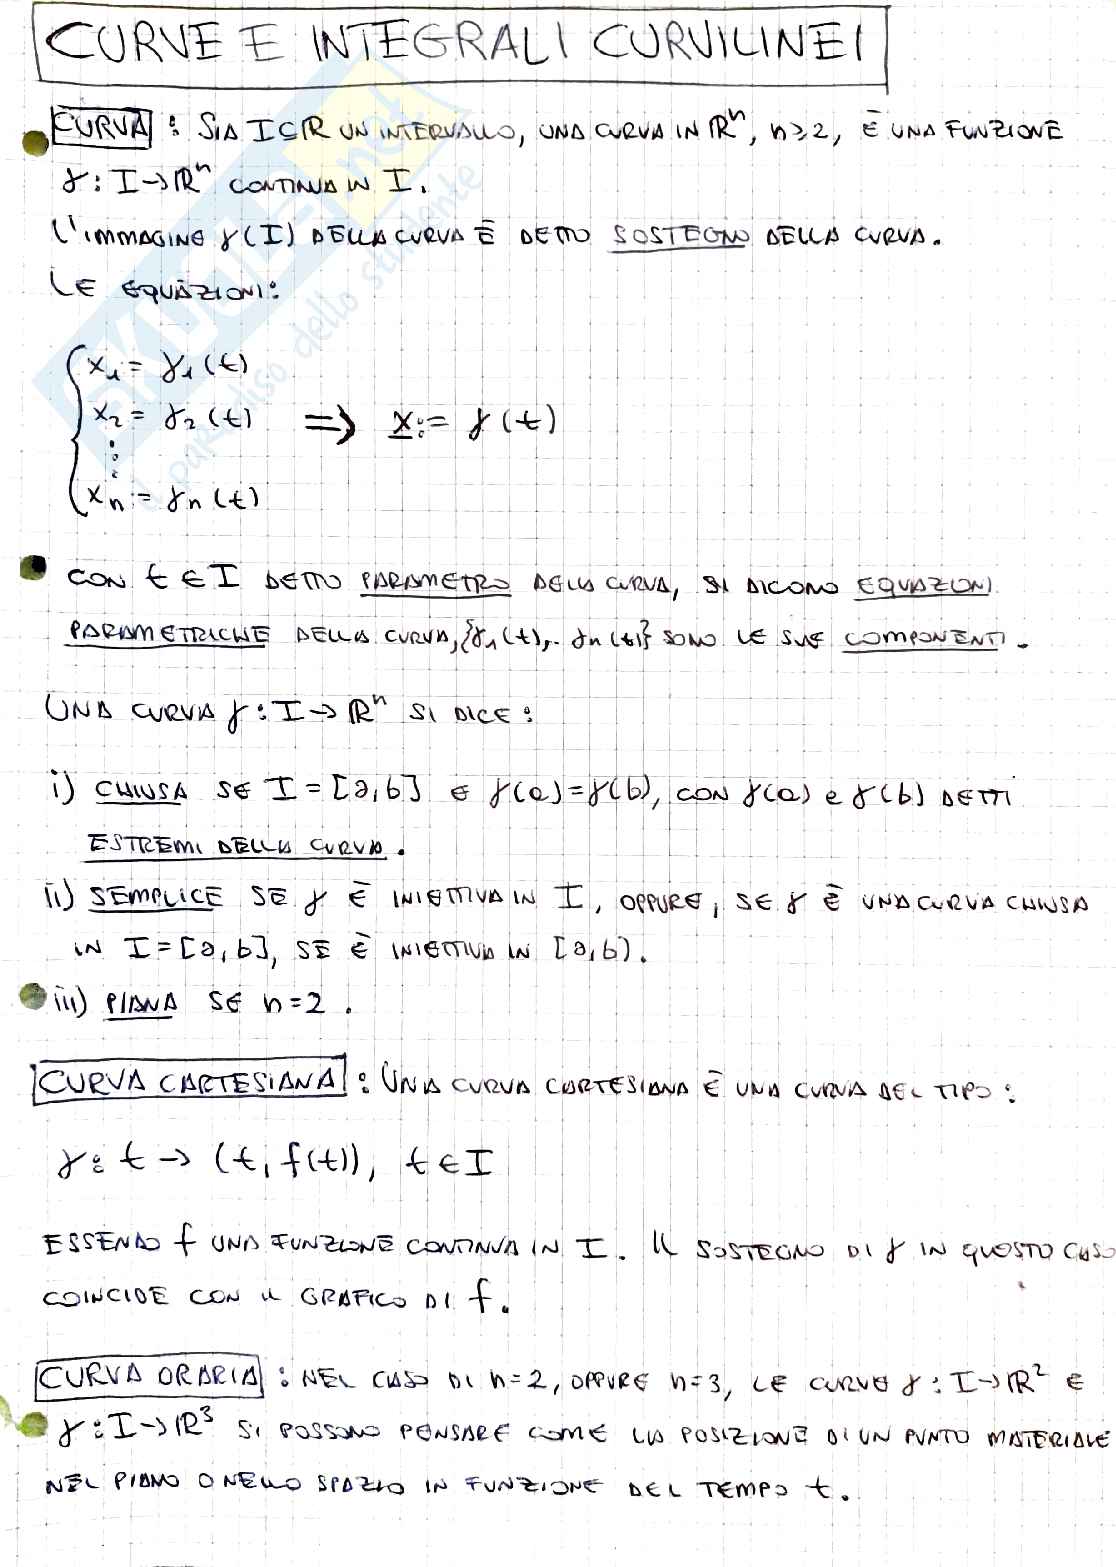 CURVE E INTEGRALI CURVILINEI
CURVA : SIA I⊆ℝ UN INTERVALLO, UNA CURVA IN ℝⁿ, n≥2, È UNA FUNZIONE
γ : I→ℝⁿ CONTINUA IN I.
L'IMMAGINE γ(I) DELLA CURVA È DETTO SOSTEGNO DELLA CURVA.
LE EQUAZIONI:
x₁ = γ₁(t)
x₂ = γ₂(t) ⇒ x := γ(t)
⋮
xₙ = γₙ(t)
CON t∈I DETTO PARAMETRO DELLA CURVA, SI DICONO EQUAZIONI
PARAMETRICHE DELLA CURVA, {γ₁(t),.. γₙ(t)} SONO LE SUE COMPONENTI.
UNA CURVA γ : I→ℝⁿ SI DICE :
i) CHIUSA SE I=[a,b] E γ(a)=γ(b), CON γ(a) e γ(b) DETTI
ESTREMI DELLA CURVA.
ii) SEMPLICE SE γ È INIETTIVA IN I, OPPURE, SE γ È UNA CURVA CHIUSA
IN I=[a,b], SE È INIETTIVA IN [a,b).
iii) PIANA SE n=2.
CURVA CARTESIANA : UNA CURVA CARTESIANA È UNA CURVA DEL TIPO :
γ : t → (t, f(t)), t∈I
ESSENDO f UNA FUNZIONE CONTINUA IN I. IL SOSTEGNO DI γ IN QUESTO CASO
COINCIDE CON IL GRAFICO DI f.
CURVA ORARIA : NEL CASO DI n=2, OPPURE n=3, LE CURVE γ : I→ℝ² E
γ : I→ℝ³ SI POSSONO PENSARE COME LA POSIZIONE DI UN PUNTO MATERIALE
NEL PIANO O NELLO SPAZIO IN FUNZIONE DEL TEMPO t.
SKUOLA.net
il paradiso dello studente